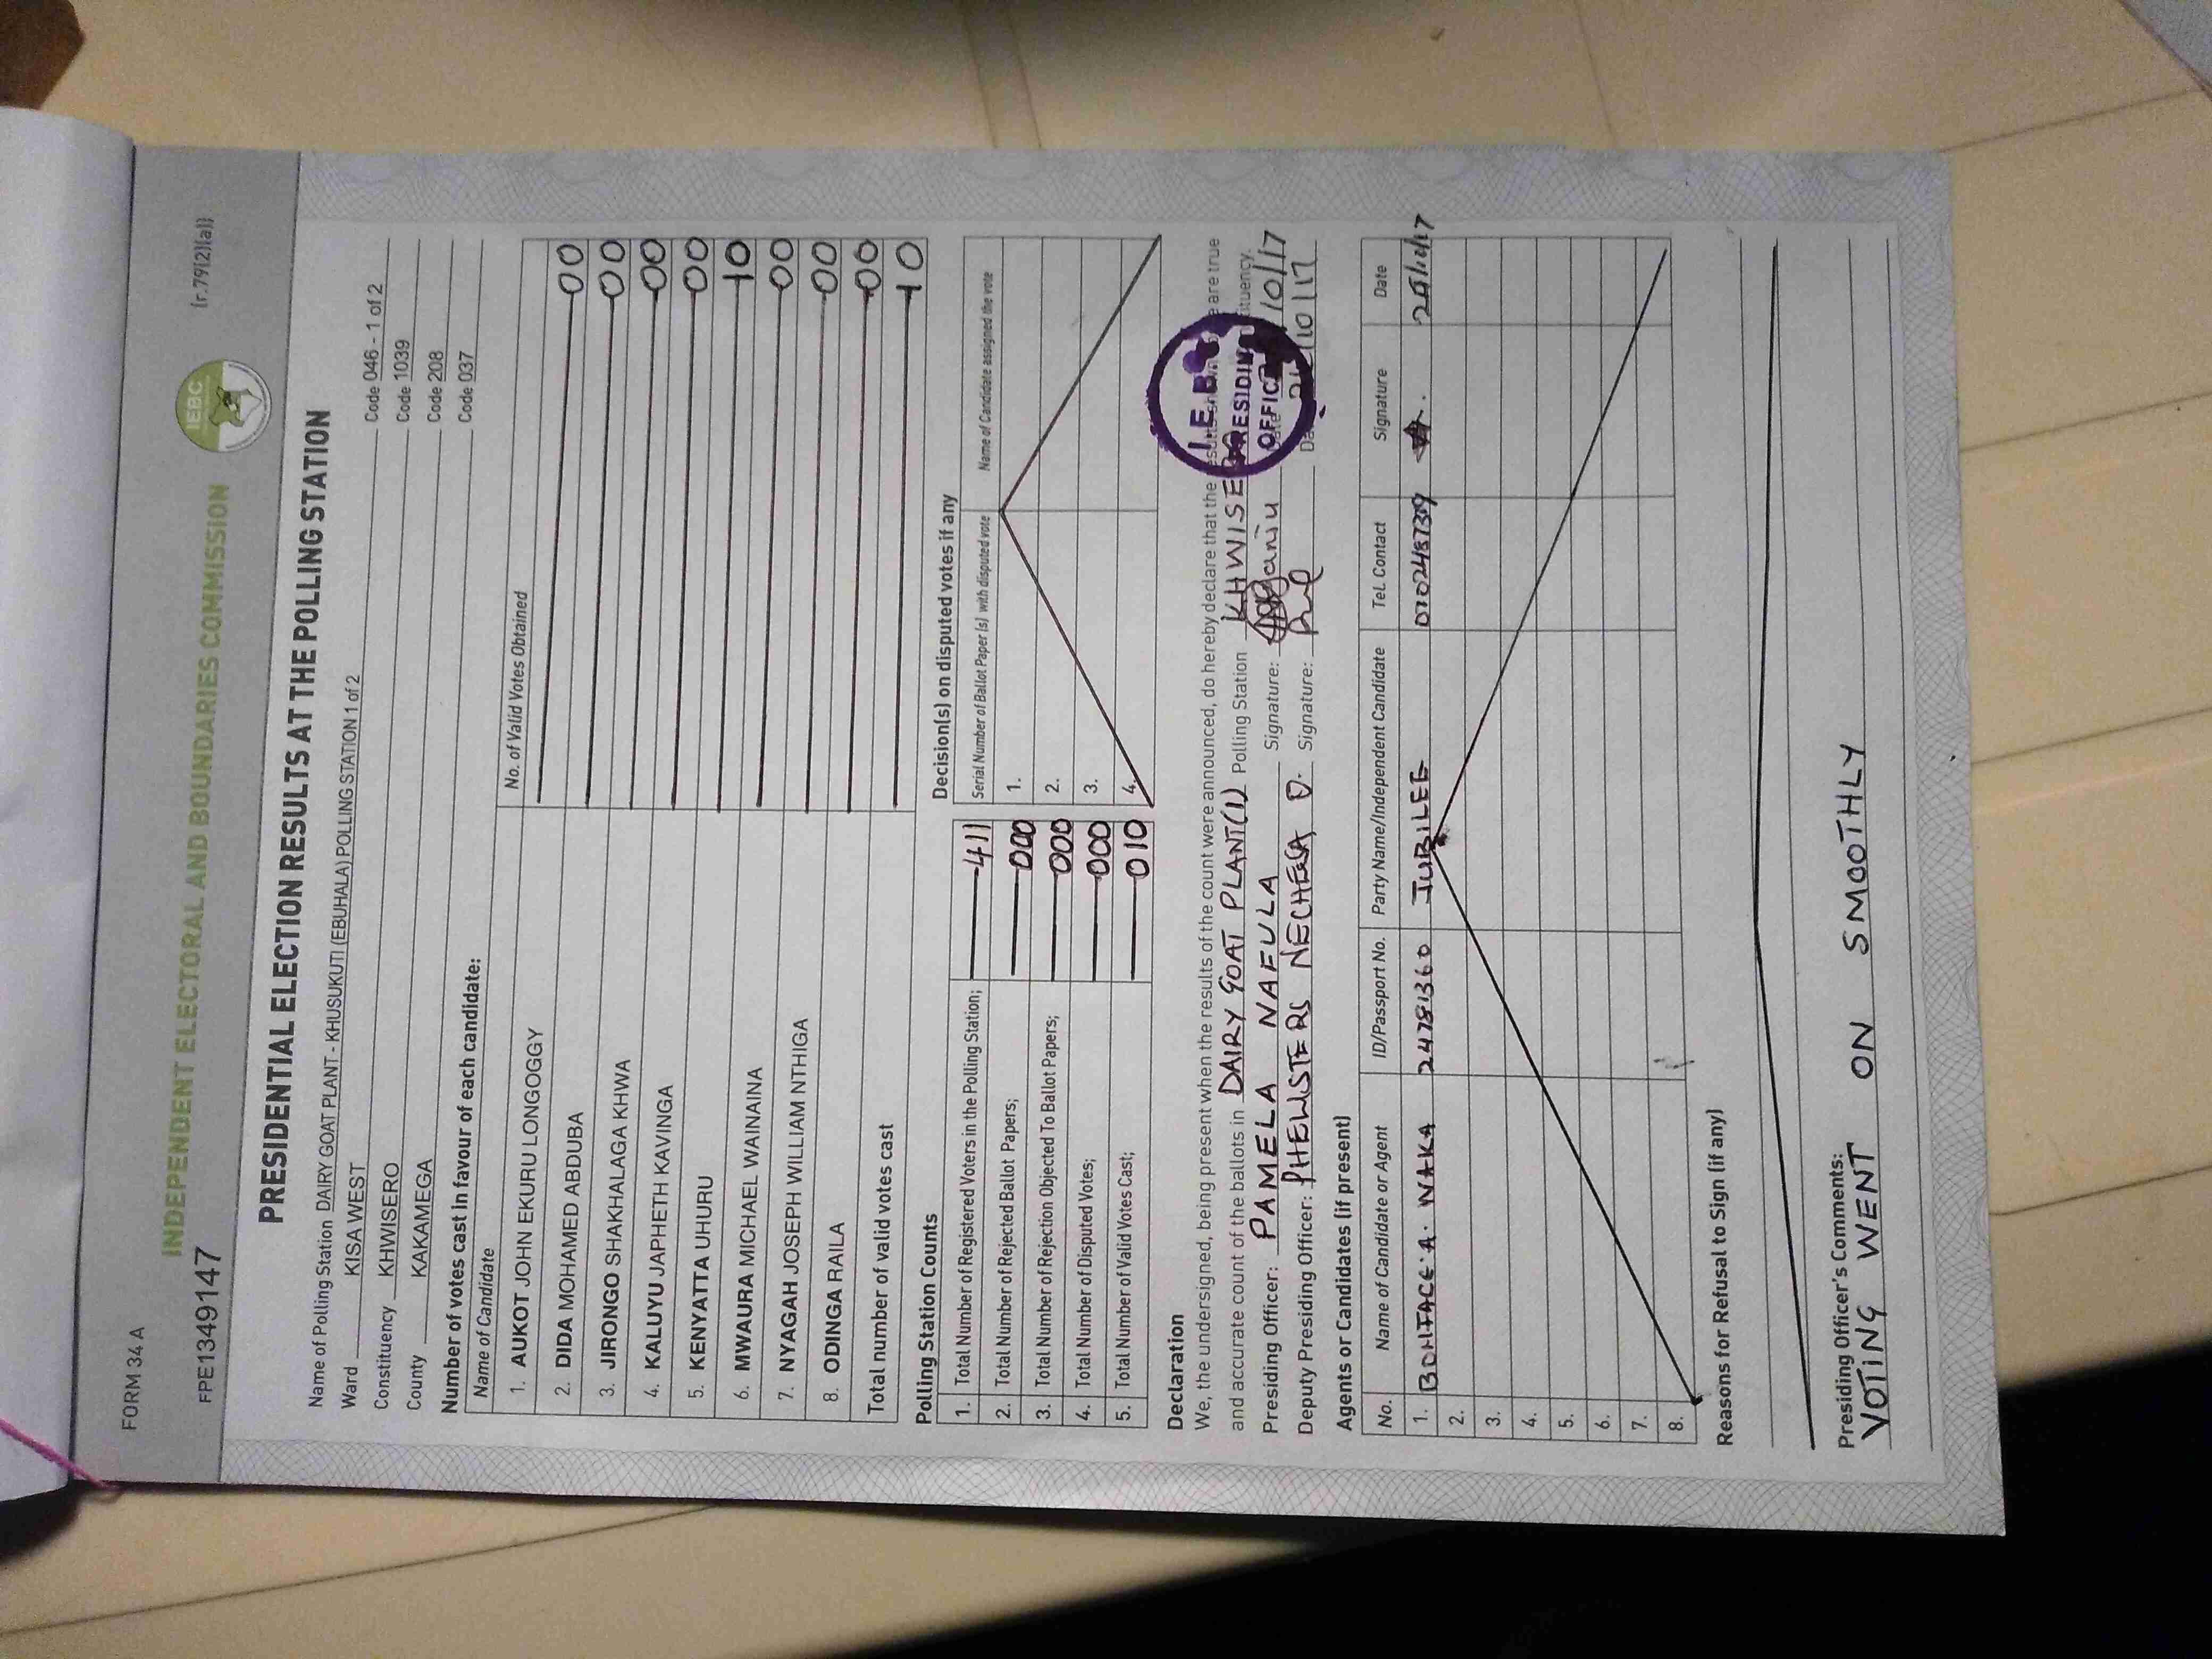 FORM 34 A
(r.79(2)(a))
FPE1349147
INDEPENDENT ELECTORAL AND BOUNDARIES COMMISSION
IEBC
PRESIDENTIAL ELECTION RESULTS AT THE POLLING STATION
Name of Polling Station DAIRY GOAT PLANT - KHUSUKUTI (EBUHALA) POLLING STATION 1 of 2 Code 046 - 1 of 2
Ward KISA WEST Code 1039
Constituency KHWISERO Code 208
County KAKAMEGA Code 037
Number of votes cast in favour of each candidate:
Name of Candidate No. of Valid Votes Obtained
1. AUKOT JOHN EKURU LONGOGGY 00
2. DIDA MOHAMED ABDUBA 00
3. JIRONGO SHAKHALAGA KHWA 00
4. KALUYU JAPHETH KAVINGA 00
5. KENYATTA UHURU 10
6. MWAURA MICHAEL WAINAINA 00
7. NYAGAH JOSEPH WILLIAM NTHIGA 00
8. ODINGA RAILA 00
Total number of valid votes cast 10
Polling Station Counts
1. Total Number of Registered Voters in the Polling Station; 411
2. Total Number of Rejected Ballot Papers; 000
3. Total Number of Rejection Objected To Ballot Papers; 000
4. Total Number of Disputed Votes; 000
5. Total Number of Valid Votes Cast; 010
Decision(s) on disputed votes if any
Serial Number of Ballot Paper (s) with disputed vote Name of Candidate assigned the vote
1.
2.
3.
4.
Declaration
We, the undersigned, being present when the results of the count were announced, do hereby declare that the are true
and accurate count of the ballots in DAIRY GOAT PLANT(1) Polling Station KHWISE
Presiding Officer: PAMELA NAFULA Signature: /10/17
Deputy Presiding Officer: NECHESA O. Signature: 10/17
I.E.B
PRESIDIN
OFFIC
Agents or Candidates (if present)
No. Name of Candidate or Agent ID/Passport No. Party Name/Independent Candidate Tel. Contact Signature Date
1. BONIFACE. A. WAKA 24781360 JUBILEE
2.
3.
4.
5.
6.
7.
8.
Reasons for Refusal to Sign (if any)
Presiding Officer's Comments:
VOTING WENT ON SMOOTHLY